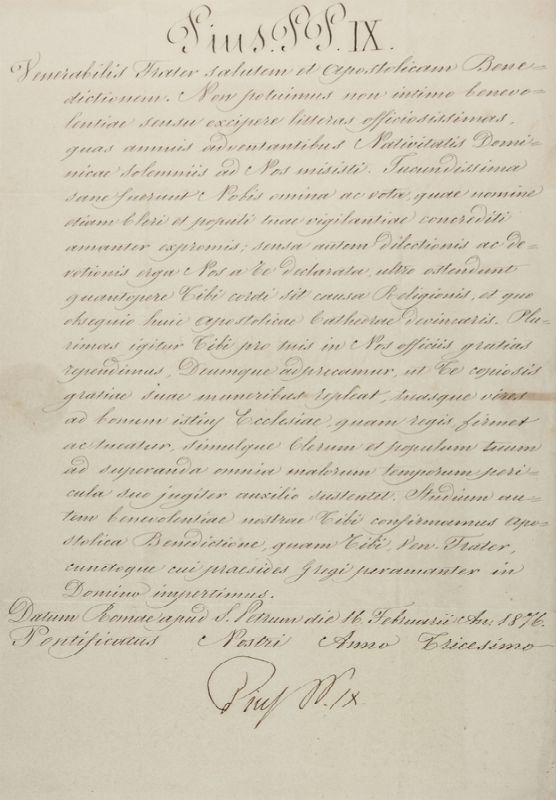 Pius. P.P. IX.
Venerabilis Frater salutem et Apostolicam Bene=
dictionem. Non potuimus non intimo benevo=
lentiae sensu excipere litteras officiosissimas,
quas annuis adventantibus Nativitatis Domi=
nicae solemniis ad Nos misisti. Jucundissima
sane fuerunt Nobis omina ac vota, quae nomine
etiam Cleri et populi tuae vigilantiae concrediti
amanter expromis; sensa autem dilectionis ac de=
votionis erga Nos a Te declarata, ultro ostendunt
quantopere Tibi cordi sit causa Religionis, et quo
obsequio huic Apostolicae Cathedrae devinciaris. Plu=
rimas igitur Tibi pro tuis in Nos officiis gratias
rependimus, Deumque adprecamur, ut Te copiosis
gratiae suae muneribus repleat, tuasque vires
ad bonum istius Ecclesiae, quam regis firmet
ac tueatur, simulque Clerum et populum tuum
ad superanda omnia malorum temporum peri=
cula suo jugiter auxilio sustentet. Studium au=
tem benevolentiae nostrae Tibi confirmamus Apo=
stolica Benedictione, quam Tibi, Ven. Frater,
cunctoque cui praesides Gregi peramanter in
Domino impertimus.
Datum Romae apud S. Petrum die 16 Februarii An. 1876.
Pontificatus Nostri Anno Tricesimo
Pius PP. IX